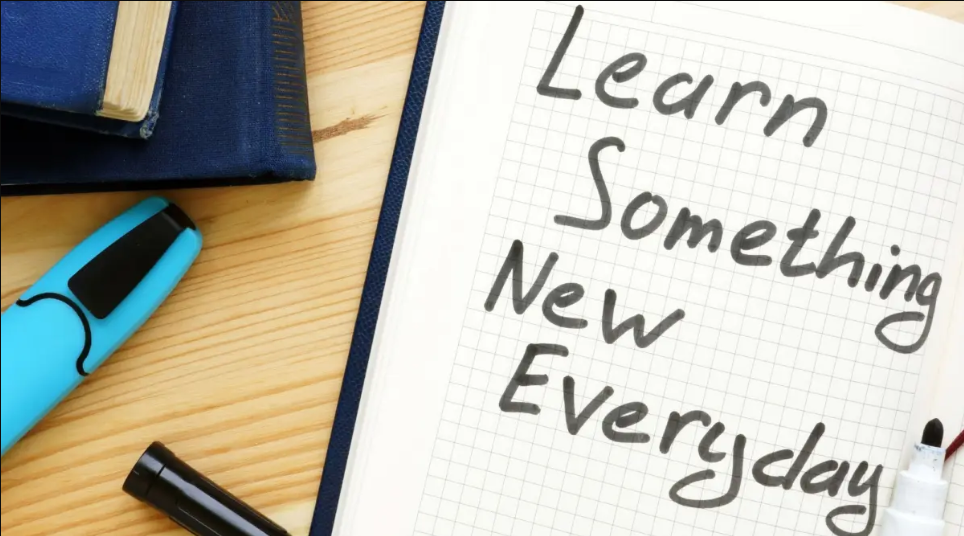 Learn
Something
New
Everyday